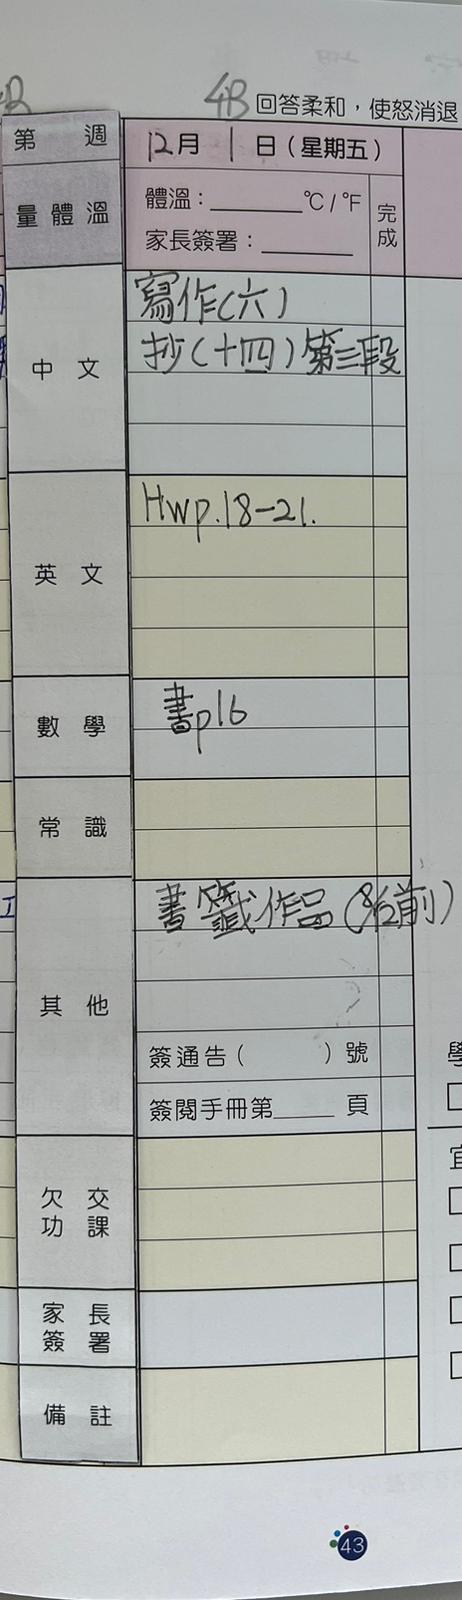 4B 回答柔和，使怒消退
第 週
12月 1 日（星期五）
量體溫
體溫：________℃/℉
完成
家長簽署：________
中文
寫作(六)
抄(十四)第三段
英文
Hwp.18-21.
數學
書p16
常識
其他
書籤作品(8/12前)
簽通告（ ）號
簽閱手冊第_____頁
欠交
功課
家長
簽署
備註
43